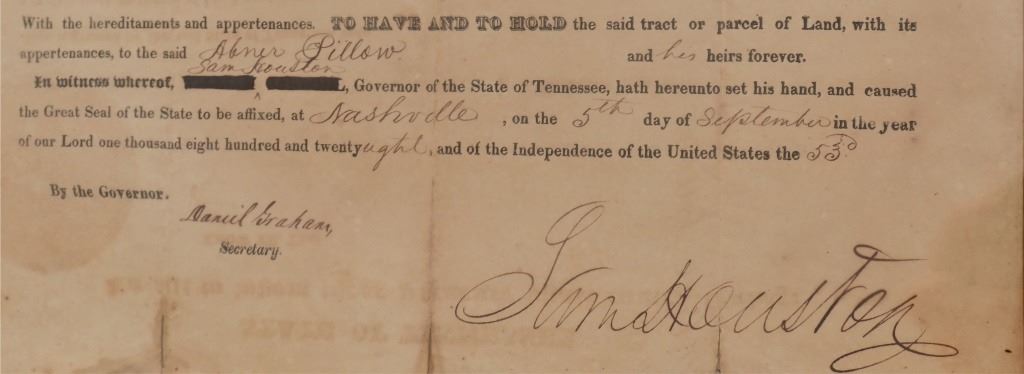 With the hereditaments and appertenances. TO HAVE AND TO HOLD the said tract or parcel of Land, with its
appertenances, to the said Abner Pillow. and his heirs forever.
Sam Houston
In witness whereof, L, Governor of the State of Tennessee, hath hereunto set his hand, and caused
the Great Seal of the State to be affixed, at Nashville, on the 5th day of September in the year
of our Lord one thousand eight hundred and twenty eight, and of the Independence of the United States the 53d.
By the Governor.
Daniel Graham,
Secretary.
Sam Houston